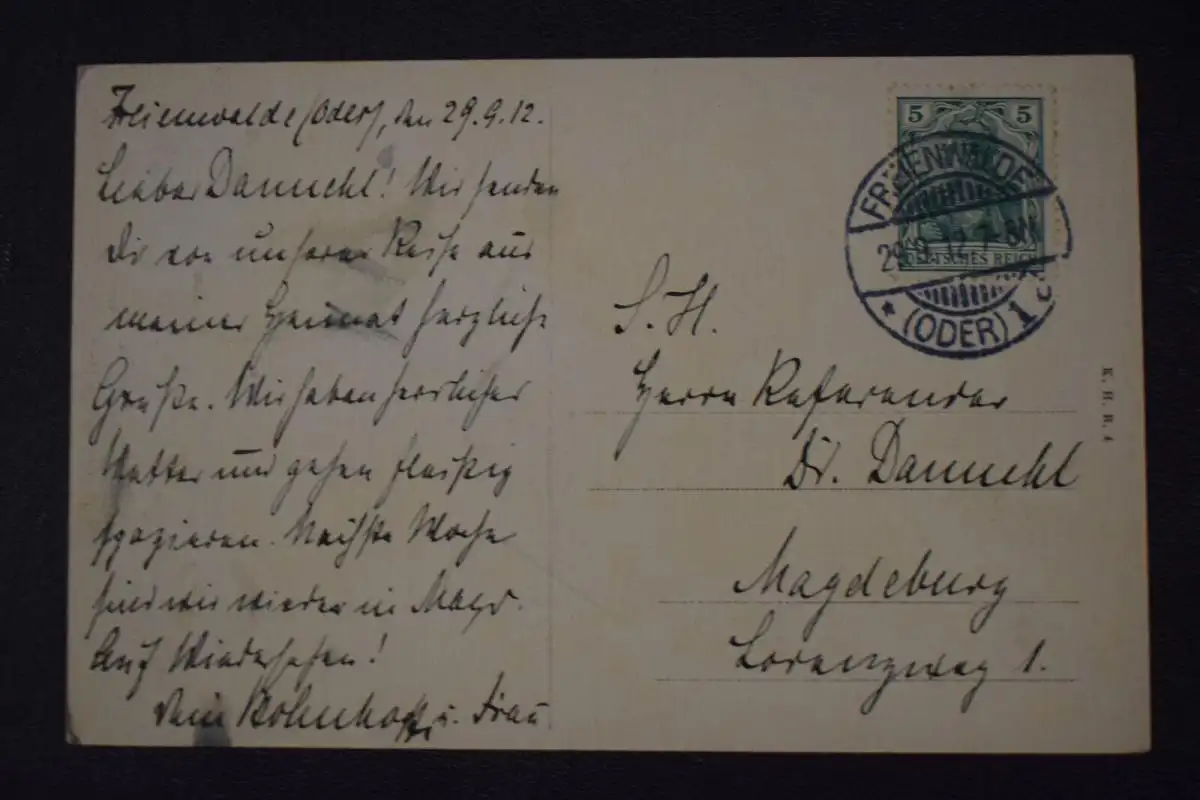 Freienwalde (Oder), den 29.9.12.
Lieber Dannehl! Wir senden
Dir von unserer Reise aus
meiner Heimat herzliche
Grüße. Wir haben herrliches
Wetter und gehen fleißig
spazieren. Nächste Woche
sind wir wieder in Magd.
Auf Wiedersehen!
Dein Bohnhoff u. Frau
5 5
DEUTSCHES REICH
FREIENWALDE
29.9.12.7-8N
* (ODER) 1 c
S. H.
Herrn Referendar
Dr. Dannehl
Magdeburg
Lorenzweg 1.
K. H. B. 4